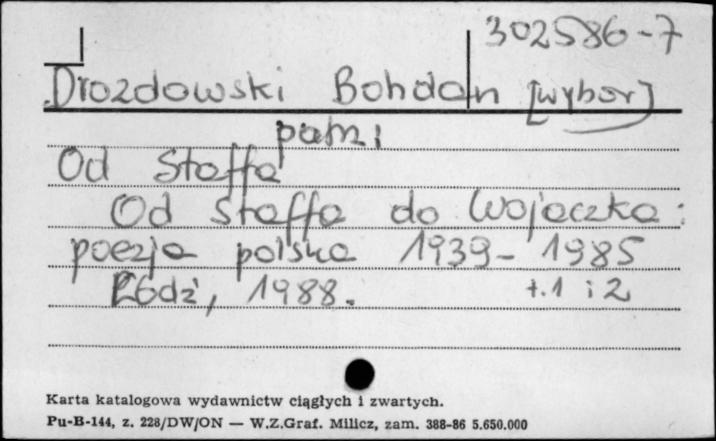 302586-7
Drozdowski Bohdan [wybór]
patrz:
Od Staffa
Od Staffa do Wojaczka :
poezja polska 1939- 1985
Łódź, 1988. t.1 i 2
Karta katalogowa wydawnictw ciągłych i zwartych.
Pu-B-144, z. 228/DW/ON — W.Z.Graf. Milicz, zam. 388-86 5.650.000